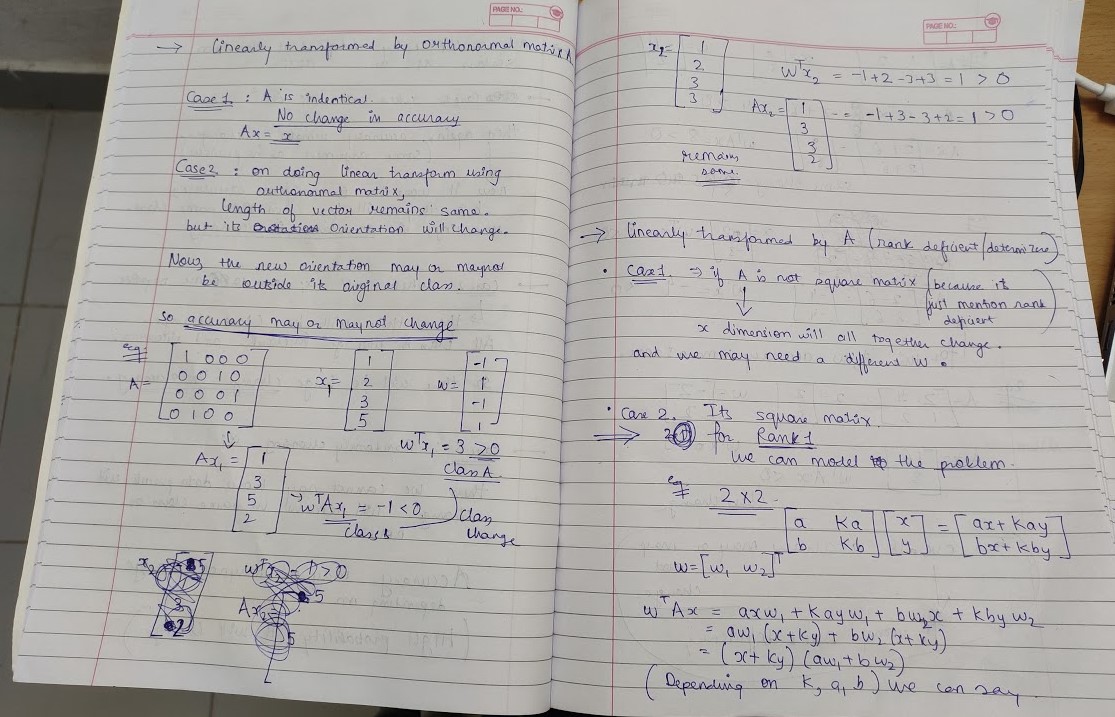 PAGE NO.:
→ linearly transformed by orthonormal matrix A
Case 1 : A is indentical.
No change in accuracy
Ax = x
Case 2 : on doing linear transform using
orthonormal matrix,
length of vector remains same.
but its Orientation will change.
Now, the new orientation may or maynot
be outside its original class.
so accuracy may or may not change
eg:
A = [1 0 0 0
0 0 1 0
0 0 0 1
0 1 0 0]
x₁ = [1
2
3
5]
w = [-1
1
-1
1]
wᵀx₁ = 3 > 0
class A.
Ax₁ = [1
3
5
2]
→ wᵀAx₁ = -1 < 0
class
class change
PAGE NO.:
x₂ = [1
2
3
3]
wᵀx₂ = -1+2-3+3 = 1 > 0
Ax₂ = [1
3
3
2]
= -1+3-3+2 = 1 > 0
remains
same.
→ linearly transformed by A (rank deficient/
• Case 1. ⇒ if A is not square matrix (because it
just mention rank
deficient)
↓
x dimension will all together change.
and we may need a different W.
• Case 2. Its square matrix
⇒ for Rank 1
we can model the problem.
eg 2 x 2
[a Ka
b Kb] [x
y] = [ax + Kay
bx + kby]
w = [w₁ w₂]ᵀ
wᵀAx = axw₁ + Kayw₁ + bw₂x + kbyw₂
= aw₁(x+ky) + bw₂(x+ky)
= (x+ky)(aw₁+bw₂)
(Depending on K, a, b) we can say